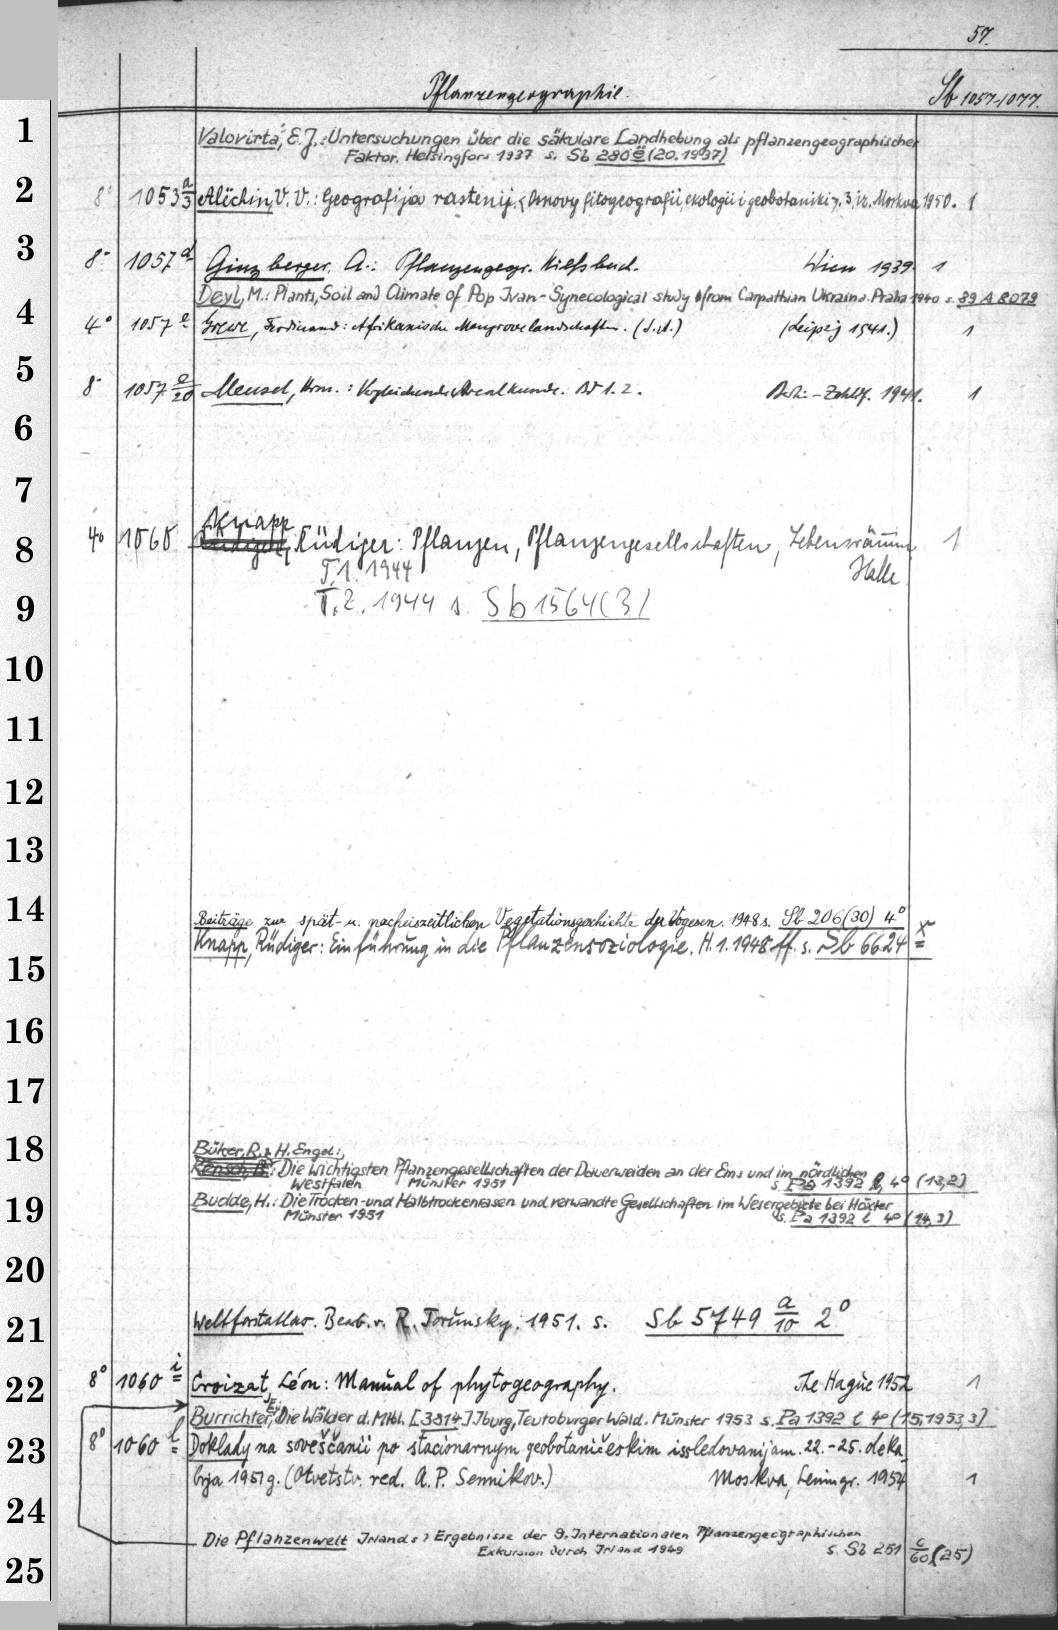 57.
Pflanzengeographie. Sb 1057-1077.
1 Valovirta, E. J.: Untersuchungen über die säkulare Landhebung als pflanzengeographischer
Faktor. Helsingfors 1937 s. Sb 280 e (20.1937)
2 8° 1053 a/3 Alëchin, V. V.: Geografija rastenij. < Osnovy fitogeografii, ekologii i geobotaniki >, 3. iz. Moskva 1950. 1
3 8° 1057 d Ginzberger, A.: Pflanzengeogr. Hilfsbuch. Wien 1939. 1
Deyl, M.: Plants, Soil and Climate of Pop Ivan - Synecological study from Carpathian Ukraina. Praha 1940 s. 39 A 8079
4 4° 1057 e Grewe, Ferdinand: Afrikanische Mangrovelandschaften. (Leipzig 1941.) 1
5 8° 1057 e/20 Meusel, Herm.: Vergleichende Arealkunde. Bd 1. 2. Berlin-Zehldf. 1941. 1
6
7
Knapp
8 4° 1060 Rüdiger: Pflanzen, Pflanzengesellschaften, Lebensräume 1
T. 1. 1944 Halle
9 T. 2. 1944 s. Sb 1564(3)
10
11
12
13
14 Beiträge zur spät- u. nacheiszeitlichen Vegetationsgeschichte der Vogesen. 1948 s. Sb 206(30) 4°
Knapp, Rüdiger: Einführung in die Pflanzensoziologie. H. 1. 1948 ff. s. Sb 6624 x
15
16
17
18 Büker, R. & H. Engel:
Die wichtigsten Pflanzengesellschaften der Dauerweiden an der Ems und im nördlichen
Westfalen Münster 1951 s. Pa 1392 l, 4° (13,2)
19 Budde, H.: Die Trocken- und Halbtrockenrasen und verwandte Gesellschaften im Wesergebiete bei Höxter
Münster 1951 s. Pa 1392 l 4° (14,3)
20
21 Weltforstatlas. Bearb. v. R. Torunsky. 1951. s. Sb 5749 a/10 2°
22 8° 1060 i Croizat, Léon: Manual of phytogeography. The Hague 1952 1
Burrichter, E.: Die Wälder d. Mtbl. [3814] Iburg, Teutoburger Wald. Münster 1953 s. Pa 1392 l 4° (15,1953,3)
23 8° 1060 l Doklady na soveščanii po stacionarnym geobotaničeskim issledovanijam. 22.-25. deka
brja 1951 g. (Otvetstv. red. A. P. Sennikov.) Moskva, Leningr. 1954 1
24 Die Pflanzenwelt Irlands > Ergebnisse der 9. Internationalen Pflanzengeographischen
Exkursion durch Irland 1949 s. Sb 251 c/60 (25)
25